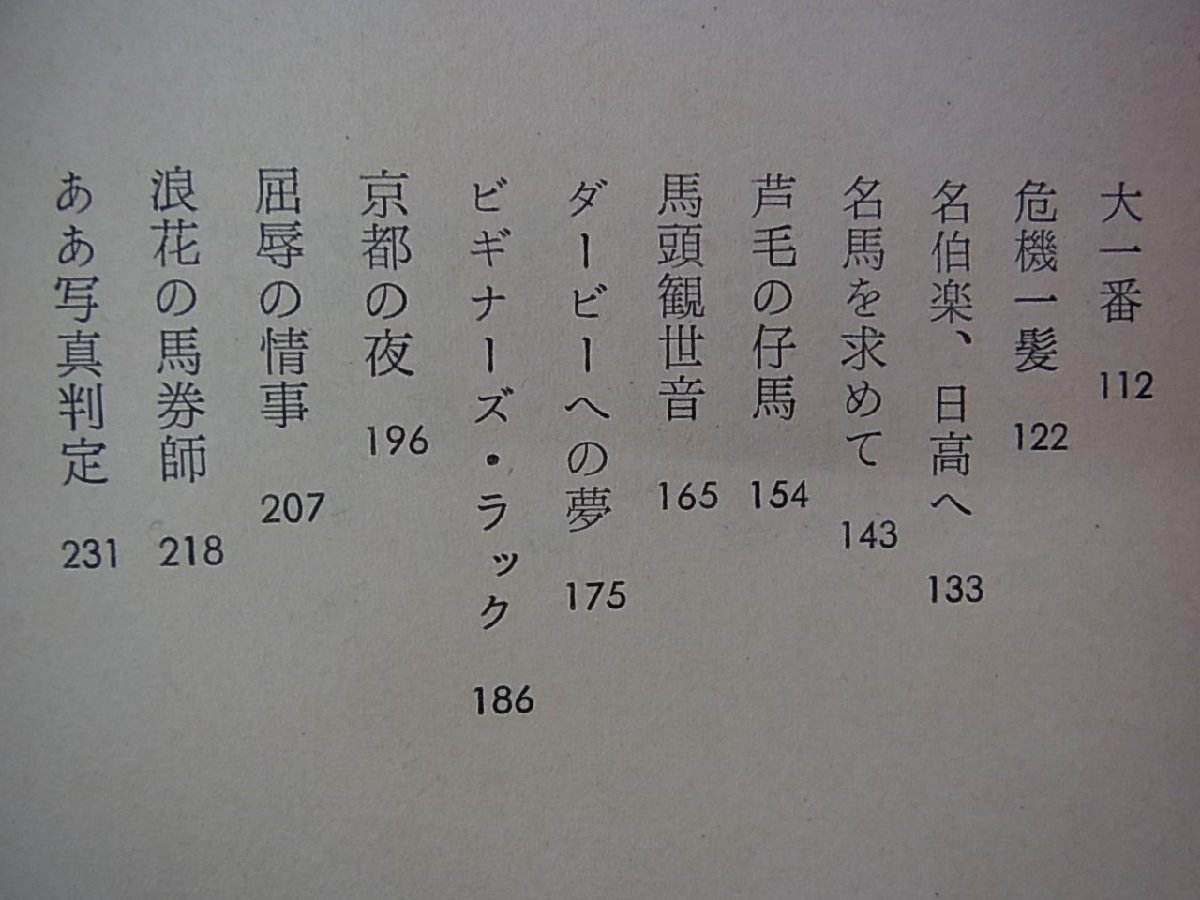 大一番 112
危機一髪 122
名伯楽、日高へ 133
名馬を求めて 143
芦毛の仔馬 154
馬頭観世音 165
ダービーへの夢 175
ビギナーズ・ラック 186
京都の夜 196
屈辱の情事 207
浪花の馬券師 218
ああ写真判定 231